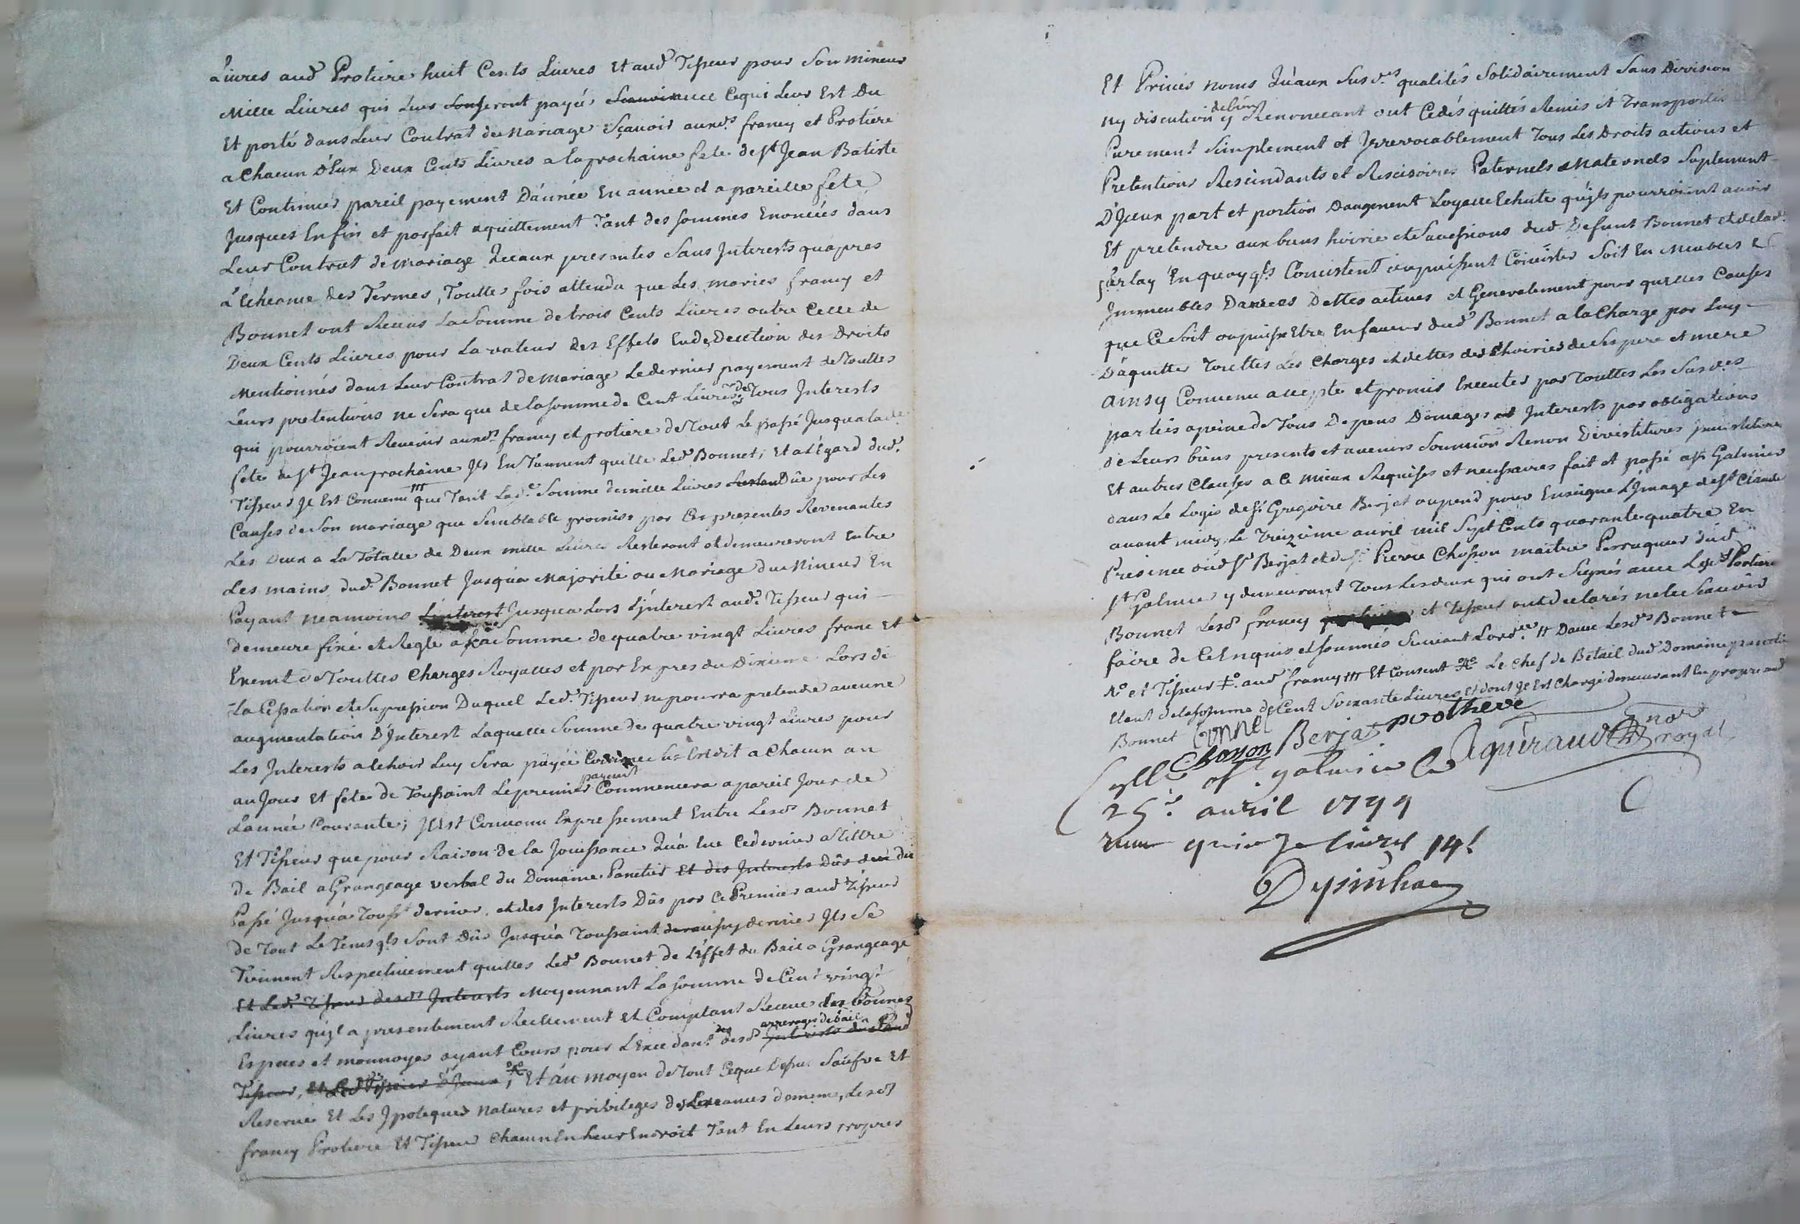 Livres aud Protiere huit Cents Livres Et aud Tisseur pour Son mineur
Mille Livres qui leur seront payés avec Cequi leur Est Du
Et porté dans leur Contrat de Mariage Sçavoir auxds francy et Protiere
a Chacun D'Eux Deux Cents Livres a la prochaine fete de st Jean Batiste
Et Continuer pareil payement D'année En année et a pareille fete
Jusques Enfin et parfait aquittement Tant des sommes Enoncées dans
Leur Contrat de Mariage Quaux presentes Sans Interests quapres
L'Echeance des Termes, Touttes fois attendu que Les maries francy et
Bonnet ont Receus La Somme de trois Cents Livres outre Celle de
Deux Cents Livres pour La valeur des Effets En Deduction des Droits
Mentionnés dans Leur Contrat de Mariage Le dernier payement de Touttes
Leurs pretentions ne Sera que de la somme de Cent Livres Tous Interests
qui pourroient Revenir auxds francy et protiere de Tout Le passé Jusqua lade
fete de st Jean prochaine Ils En Tiennent quitte Led Bonnet; Et a L'Egard dud.
Tisseur Il Est Convenu que Tant Lade Somme de mille Livres Dûe pour Les
Causes de Son mariage que Semblable promise par Ces presentes Revenantes
Les Deux a La Totalle de Deux mille Livres Resteront et demeureront Entre
Les mains dud Bonnet Jusqua Majorité ou Mariage du Mineur En
Payant neamoins Jusqua Lors L'interest aud Tisseur qui
demeure fixé et Reglé a la Somme de quatre vingt Livres franc Et
Exempt de Touttes Charges Royalles et par Expres du Dixieme Lors de
La Cessation et Supression Duquel Led Tisseur ne pourra pretendre aucune
augmentation D'Interest Laquelle Somme de quatre vingt Livres pour
Les Interests a Echoir Luy Sera payée a Chacun an
payement
au Jour Et fete de Toussaint Le premier Commencera a pareil Jour de
Lannée Courante; Il Est Convenu Expressement Entre Lesds Bonnet
Et Tisseur que pour Raison de la Jouissance Qu'a Eue Ce dernier a Tittre
de Bail a Grangeage verbal du Domaine Et des Interests Dûs
Passé Jusqu'a Touss dernier, et des Interests Dûs par Ce Premier aud Tisseur
de Tout Le Tems qls Sont Dûs Jusqu'a Toussaint dernier Ils Se
Tiennent Respectivement quittes Led Bonnet de L'Effet du Bail a Grangeage
Et Led Tisseur desds Interests Moyennant La Somme de Cent vingt
Livres qu'il a presentement Reellement Et Comptant Receue En bonnes
arrerages de bail
Especes et monnoyes ayant Cours pour L'Excedant desds
Tisseur, Et au moyen de Tout Ceque Dessus Saufve Et
Reservé Et Les Ypoteques Natures et privileges dememe, Lesds
francy Protiere Et Tisseur Chacun En Leur Endroit Tant En Leurs propres
Et Privés noms Qu'aux Susds qualités Solidairement Sans Division
de biens
ny discution y Renonceant ont Cedés quittés Remis et Transportés
Purement Simplement et Yrrevocablement Tous Les Droits actions et
Pretentions Rescindants et Rescisoires Paternels Maternels Suplement
D'Iceux part et portion Daugement Loyalle Echute qu'ils pourroient avoir
Et pretendre aux biens hoirie et Successions dud Defunt Bonnet et de lad.
En quoy qls Consistent ou puissent Consister Soit En Meubles
Immeubles Danrees Dettes actives et Generalement pour quelles Causes
que Ce Soit ou puisse Etre En faveur dud Bonnet a la Charge par Luy
D'aquitter Touttes Les Charges et dettes des hoiries de Ses pere et mere
Ainsy Convenu accepté et promis Executer par Touttes Les Susdes
parties a peine de Tous Depens Domages et Interests par obligations
de Leurs biens presents et avenirs Soumission Renon Divestitures
Et autres Clauses a Ce Mieux Requises et necessaires fait et passé a st Galmier
dans Le Logis de sr Gregoire Berjat ou pend pour Enseigne L'Image de st Claude
avant midy Le Treizieme avril mil Sept Cents quarante quatre En
Presence dud sr Berjat et de sr Pierre Chosson maitre Perruquier dud
st Galmier y demeurant Tous Les deux qui ont Signés avec Lesds Protiere
Bonnet Lesds francy et Tisseur ont declarés ne le Scavoir
faire de Ce Enquis et Sommés Suivant Lordce Dame Lesds Bonnet
Et Tisseur aud francy Et Consent Le Chef de Bétail dud Domaine
Etant de la somme de Cent Soixante Livres Et dont Il Est Chargé demeurant En propre aud
Bonnet Bonnet protiere
Chosson Berjat gueraud nore royal
Collé a st galmier Le
25e avril 1744
reçu quinze livres 14s